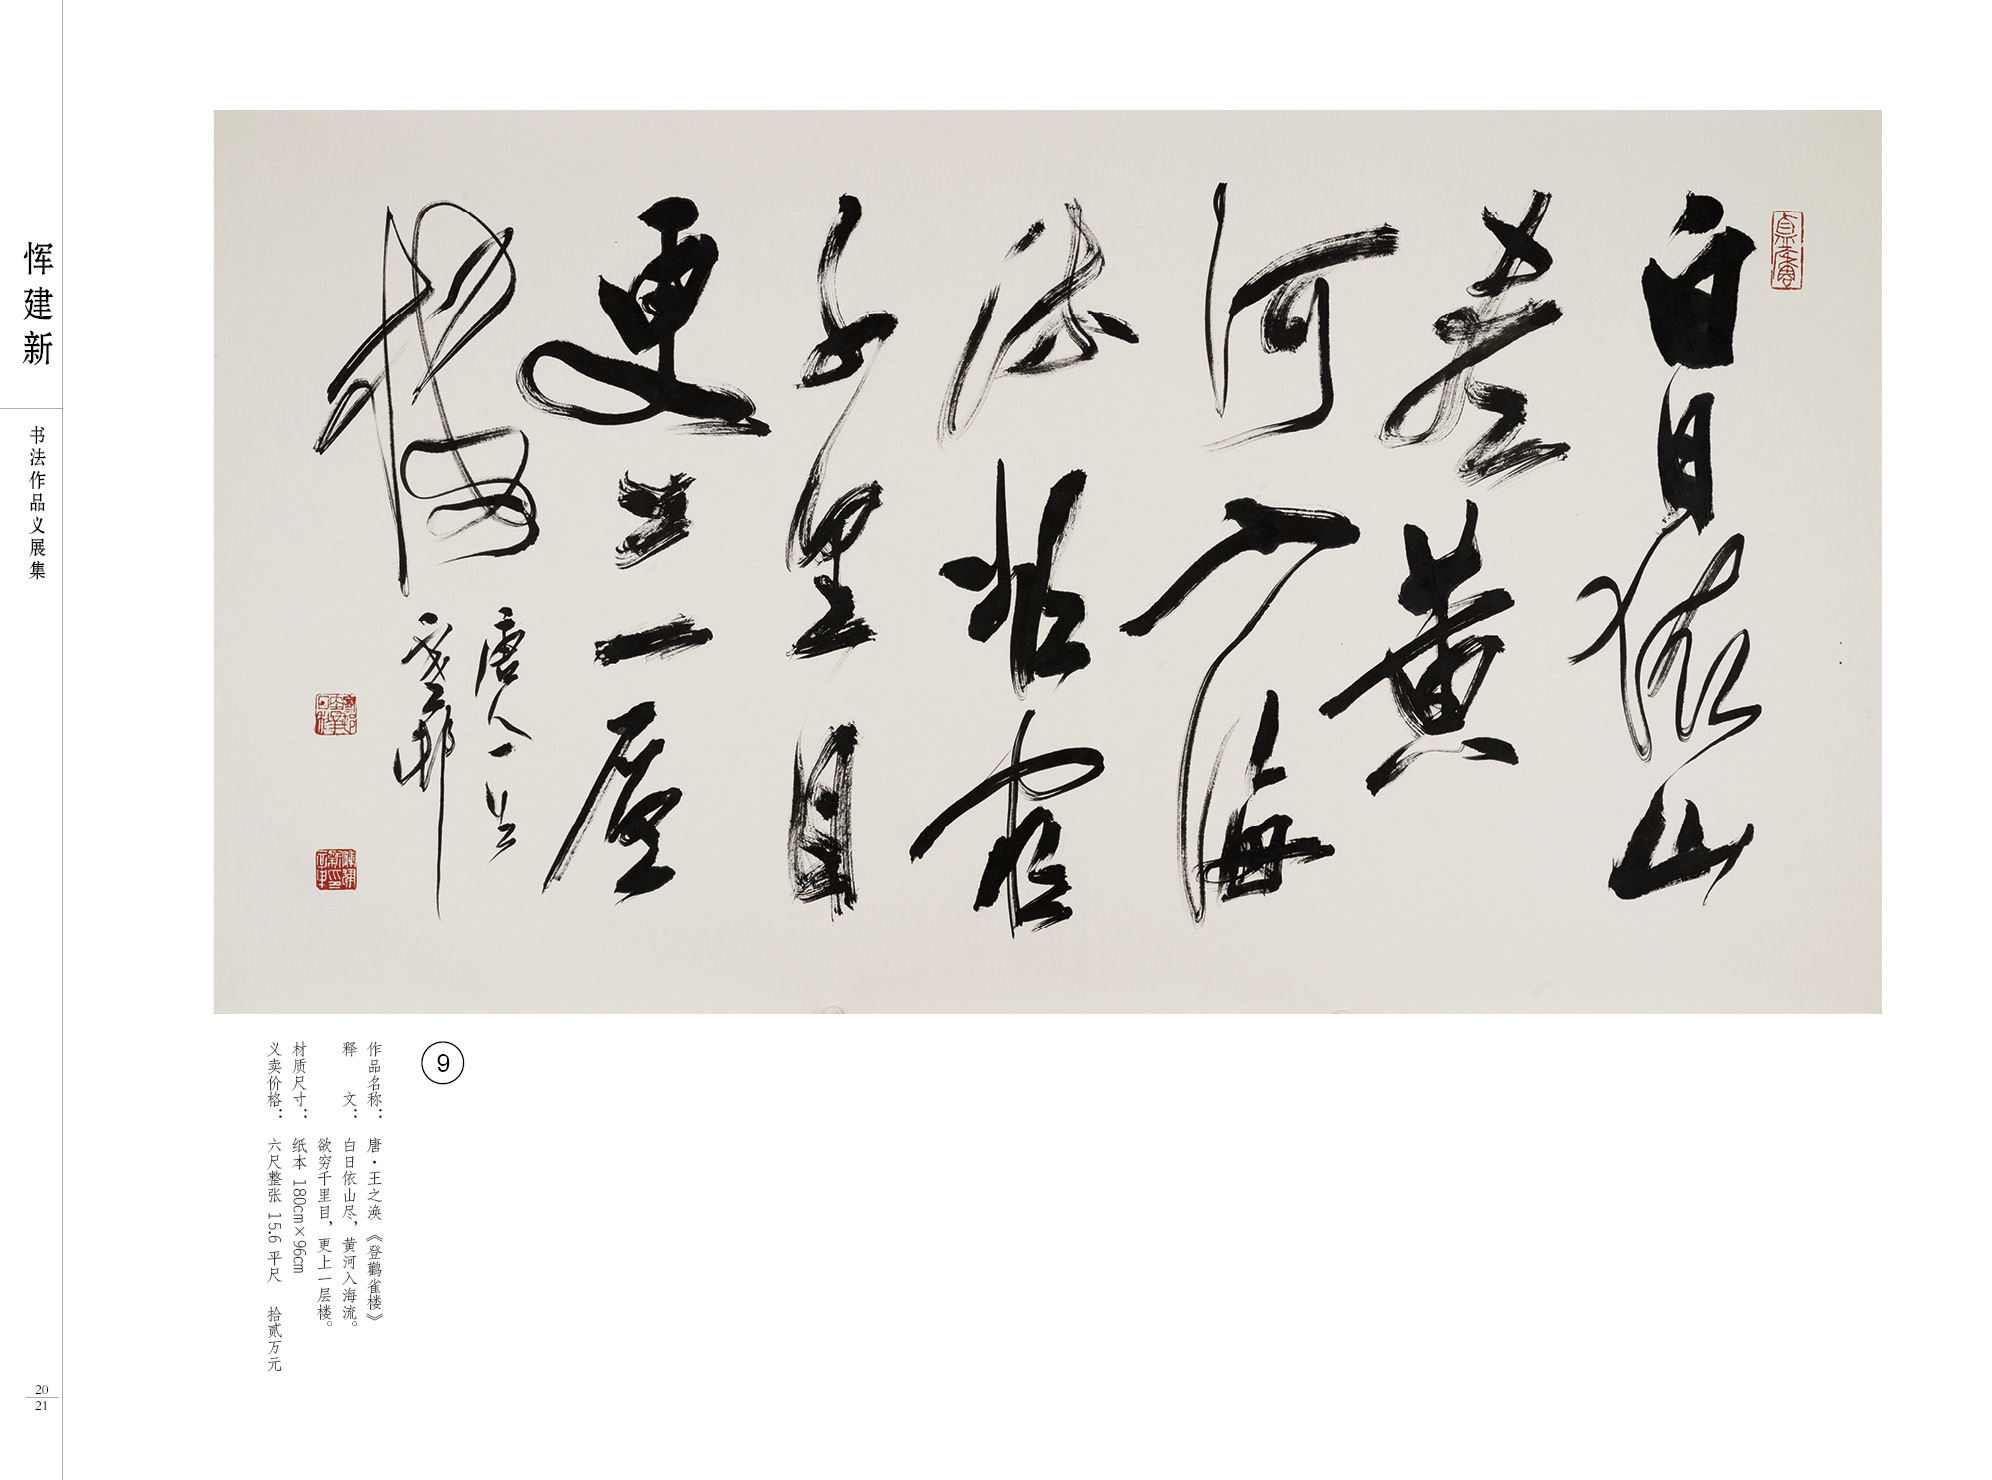 恽建新
书法作品义展集
白日依山
盡黄
河入海
流欲窮
千里目
更上一層
樓
唐人一首
9
作品名称： 唐·王之涣《登鸛雀楼》
释 文： 白日依山尽，黄河入海流。
欲穷千里目，更上一层楼。
材质尺寸： 纸本 180cm×96cm
义卖价格： 六尺整张 15.6 平尺 拾贰万元
20
21